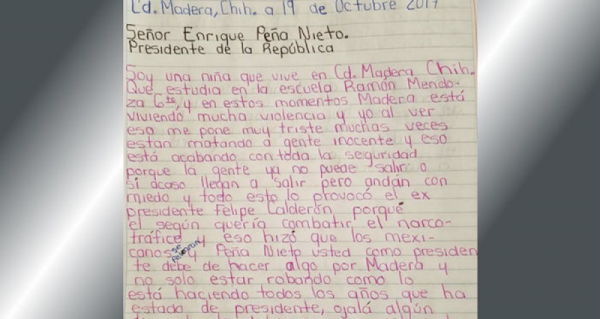 Cd. Madera, Chih. a 19 de Octubre 2017
Señor Enrique Peña Nieto.
Presidente de la República
Soy una niña que vive en Cd. Madera Chih.
Que estudia en la escuela Ramón Mendo-
za 6to, y en estos momentos Madera está
viviendo mucha violencia y yo al ver
eso me pone muy triste muchas veces
estan matando a gente inocente y eso
está acabando con toda la seguridad
porque la gente ya no puede salir o
si acaso llegan a salir pero andán con
miedo y todo esto lo provocó el ex
presidente Felipe Calderón, porqué
el según quería combatir el narco-
tráfico y eso hizó que los mexi-
canos se y Peña Nieto usted como presiden
te debe de hacer algo por Madera y
no solo estar robando como lo
está haciendo todos los años que ha
estado de presidente, ojalá algún